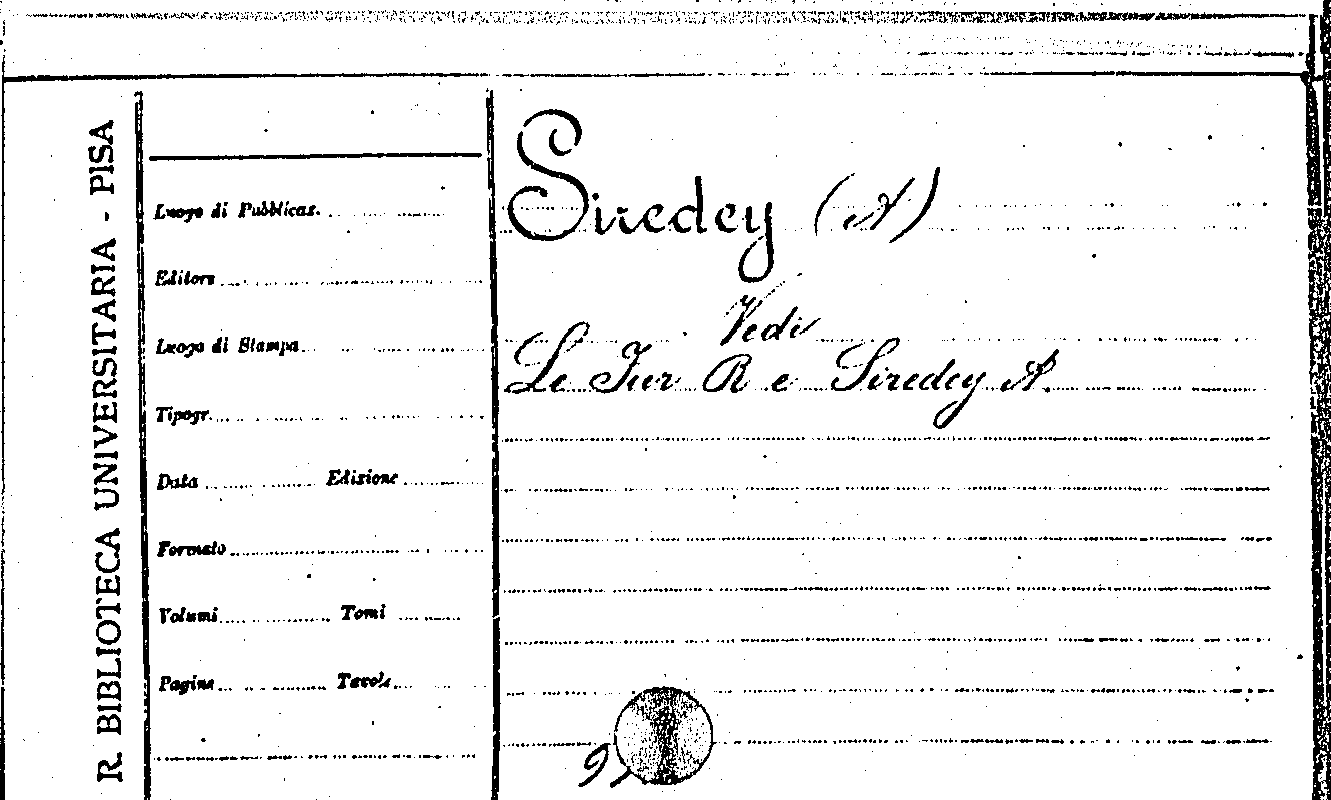 R. BIBLIOTECA UNIVERSITARIA - PISA
Luogo di Pubblicaz.
Editore
Luogo di Stampa
Tipogr.
Data Edizione
Formato
Volumi Tomi
Pagine Tavole
Siredey (A)
Vedi
Le Fur R e Siredey A.